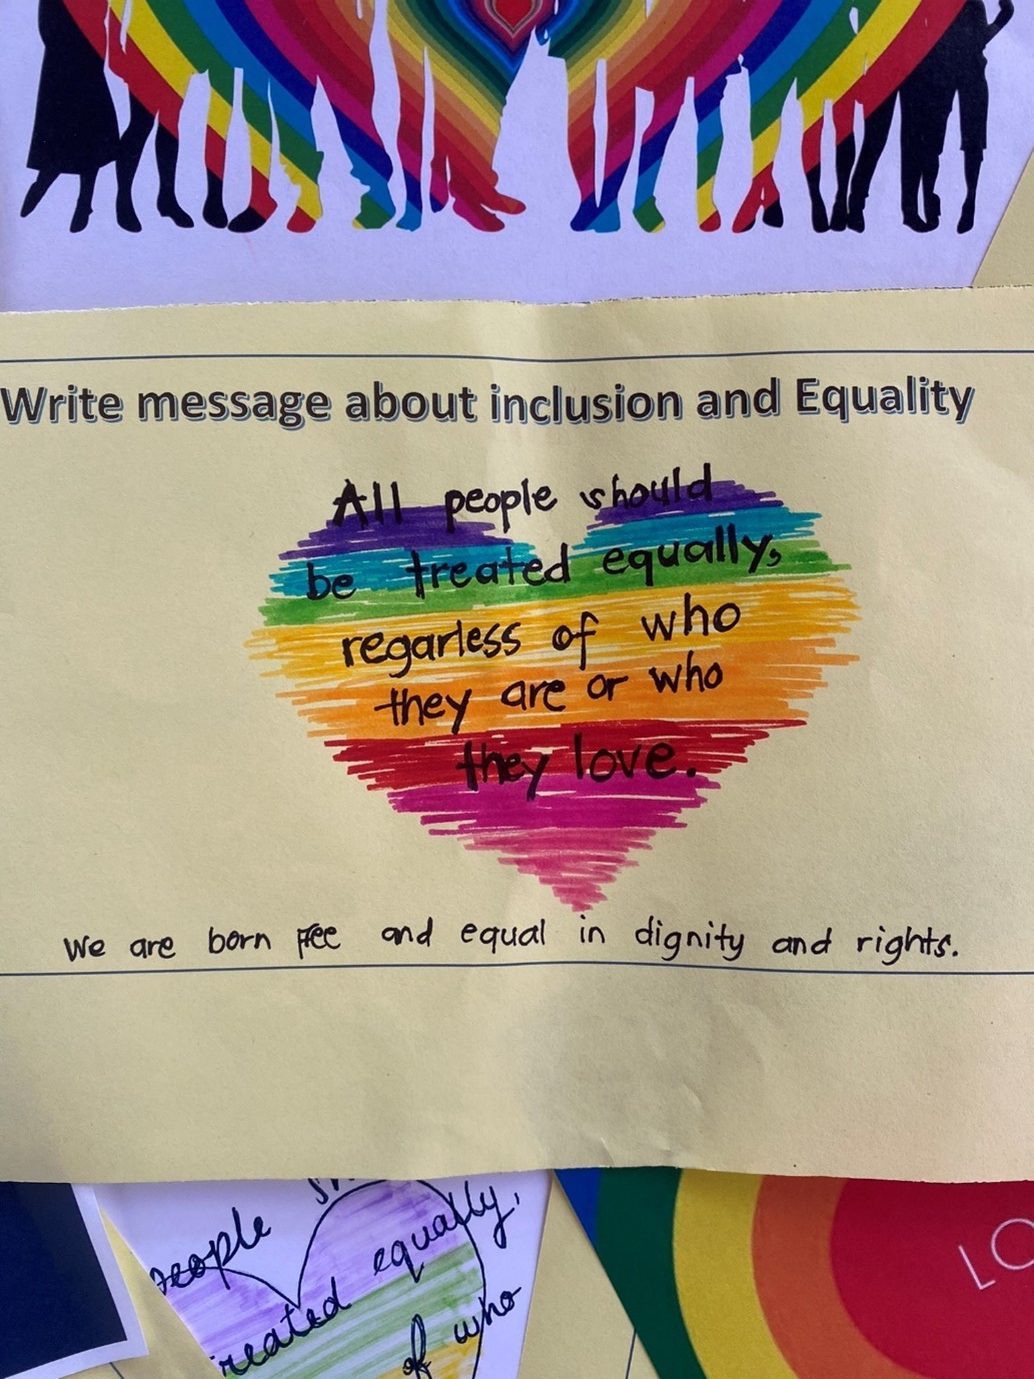 Write message about inclusion and Equality
All people should
be treated equally,
regarless of who
they are or who
they love.
We are born free and equal in dignity and rights.
people
equally,
treated
of who
LO